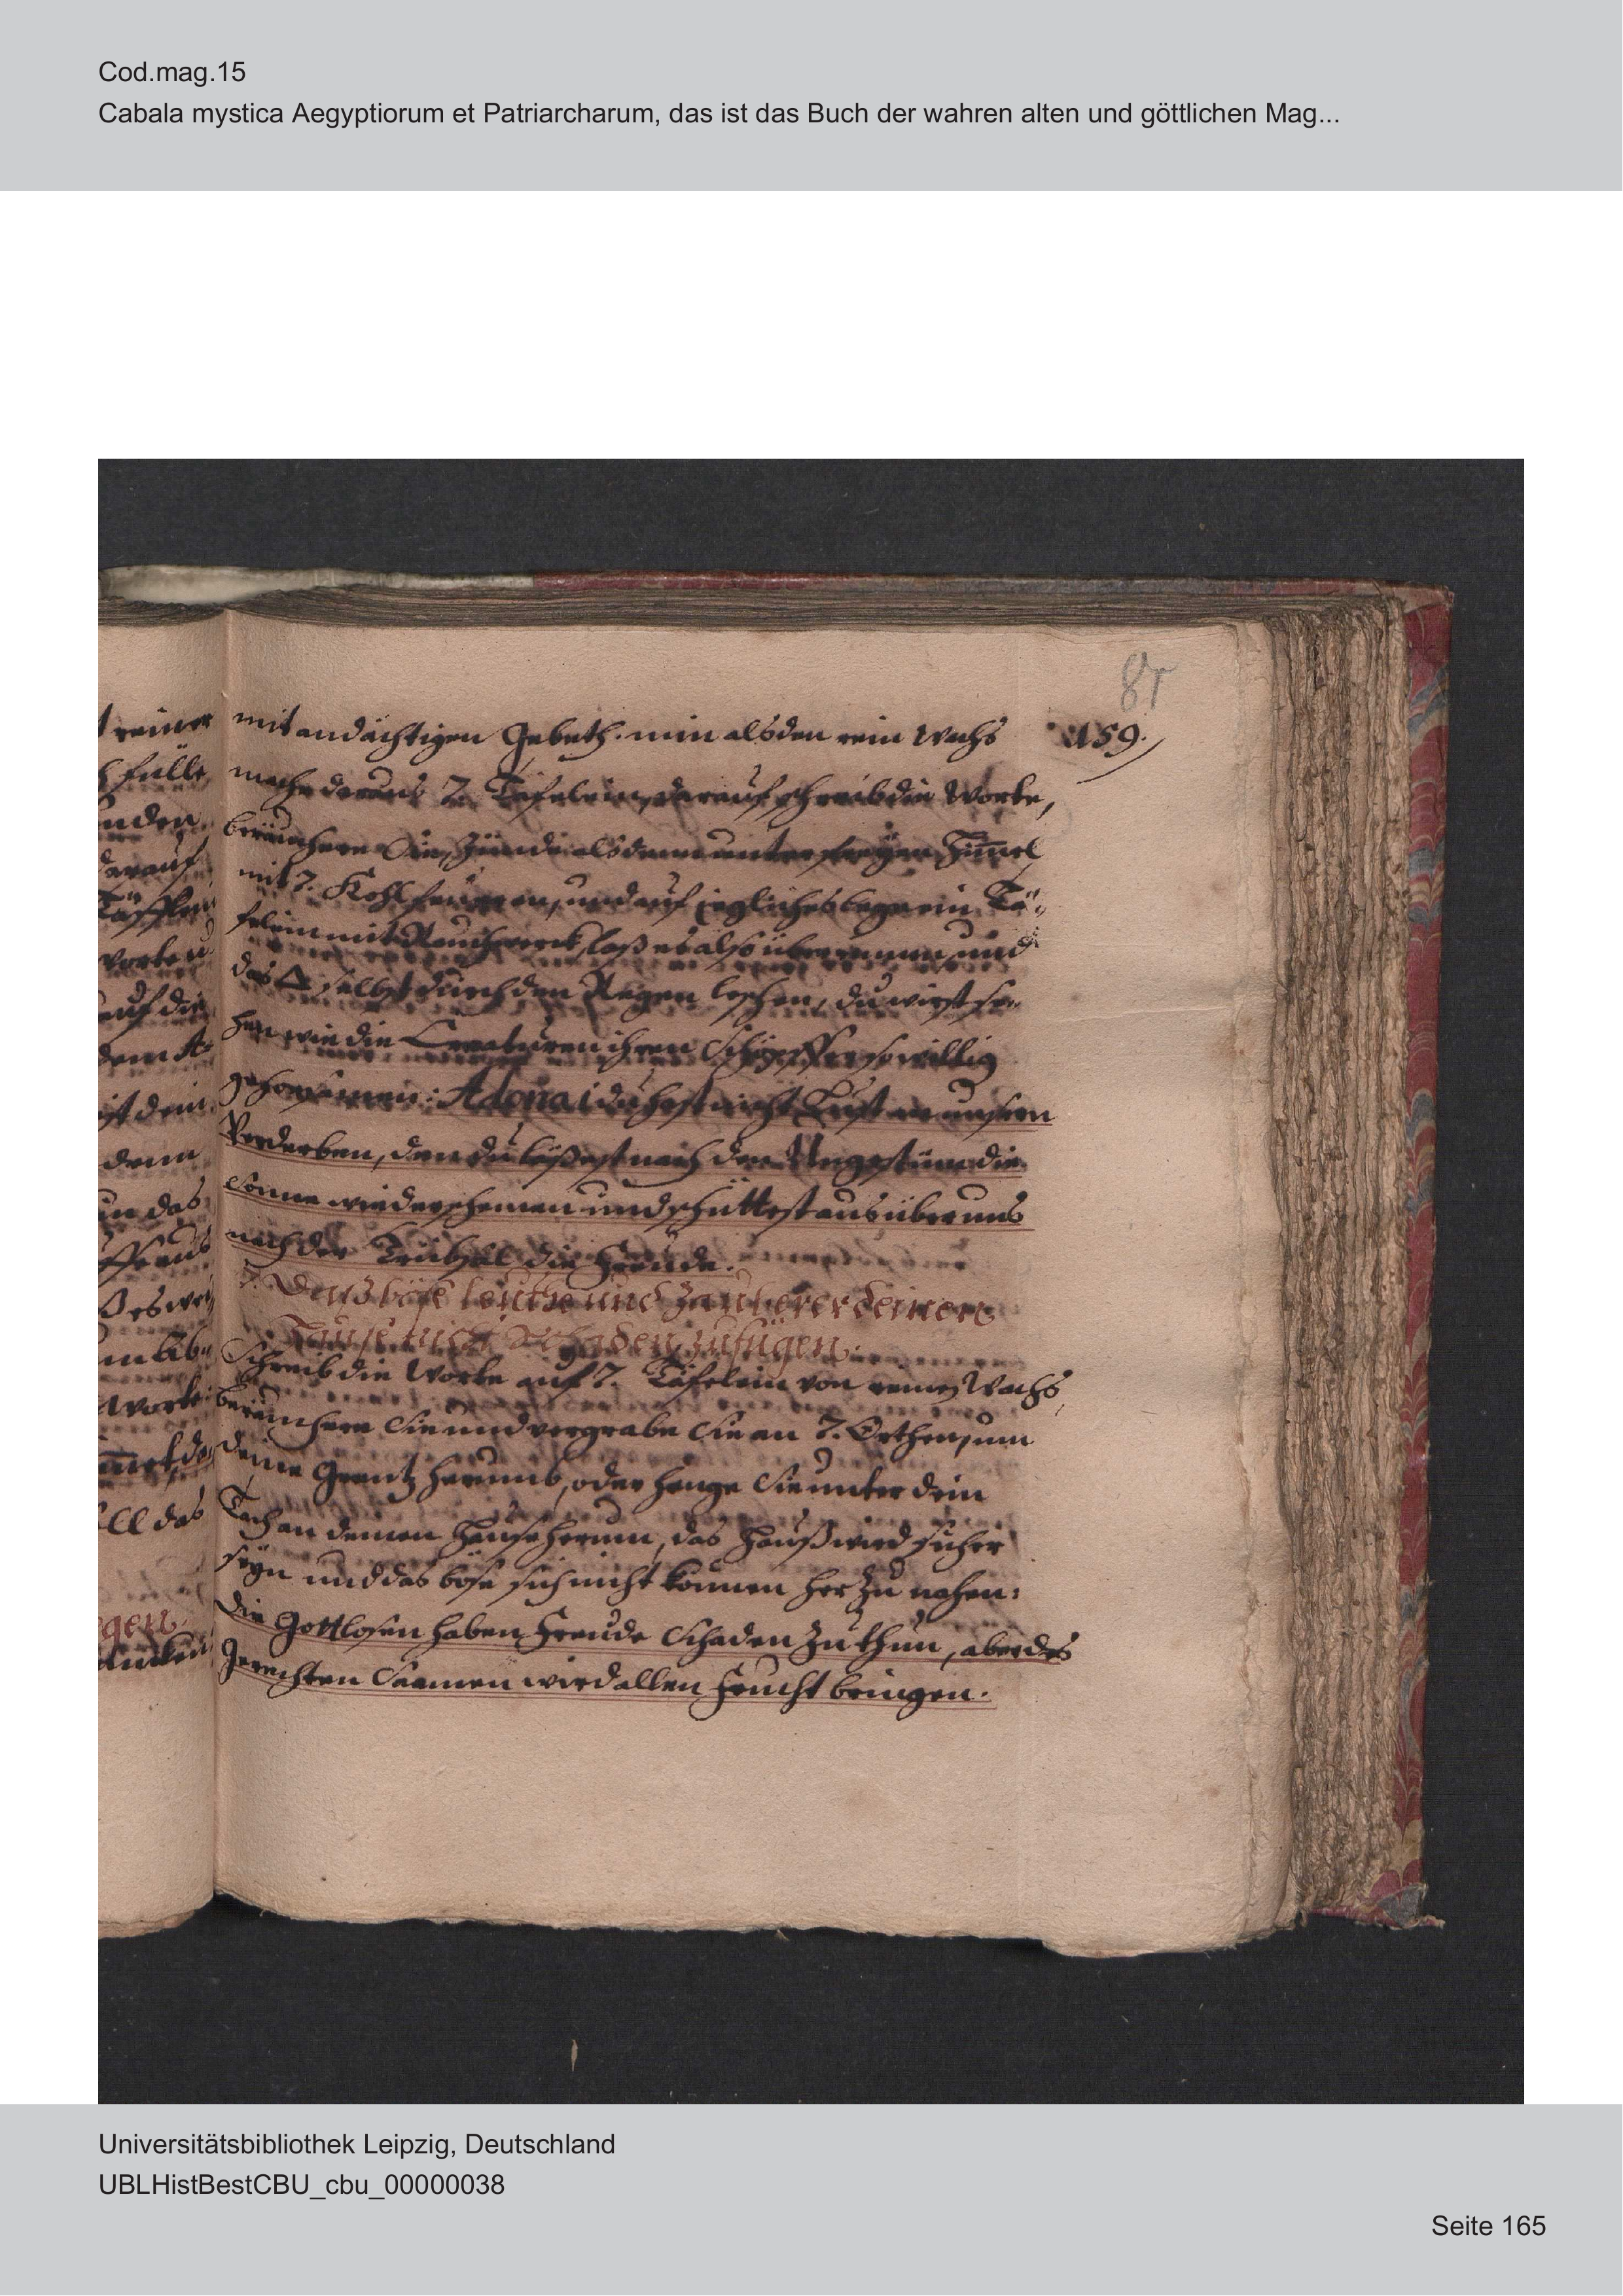 Cod.mag.15
Cabala mystica Aegyptiorum et Patriarcharum, das ist das Buch der wahren alten und göttlichen Mag...
85
159.
mit andächtigen Gebeth. nim alsden rein Wachs
mache daraus 7. Täfelein, darauf schreib die Worte,
beräuchere Sie, zünde alsdenn unter freyen Him̄el
mit 7. Kohlfeuer an, und auf jegliches lege ein Tä-
felein mit Rauchwerck, laß es also und
das Δ selbst durch den Regen leschen, du wirst se-
hen wie die Creaturen ihren Schöpffer so willig
gehorsamen: Adonai du hast nicht Lust an unsern
Verderben, den du läßest nach den Ungestüm die
Sonne wieder scheinen und schüttest aus über uns
nach der Trübsal die Freude.
7. Das böse leuthe und Zauberer deinem
Hause nicht Schaden zufügen.
Schreib die Worte auf 7. Täfelein von reinen Wachs,
beräuchere Sie und vergrabe Sie an 7. Orthen, um
deine Grentz herumb, oder henge Sie unter dein
Tach an deinen Hause herum, das Hauß wird sicher
seyn und das böse sich nicht können herzu nahen:
Die Gottlosen haben Freude Schaden zu thun, aber des
Gerechten Saamen wird allen Frucht bringen.
Universitätsbibliothek Leipzig, Deutschland
UBLHistBestCBU_cbu_00000038
Seite 165